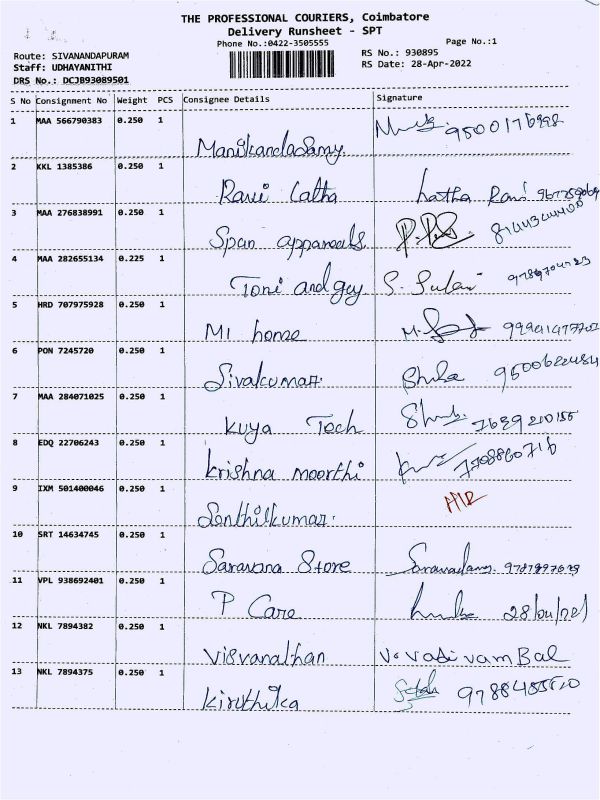 THE PROFESSIONAL COURIERS, Coimbatore
Delivery Runsheet - SPT
Phone No.:0422-3505555 Page No.:1
Route: SIVANANDAPURAM RS No.: 930895
Staff: UDHAYANITHI RS Date: 28-Apr-2022
DRS No.: DCJB93089501
S No Consignment No Weight PCS Consignee Details Signature
1 MAA 566790383 0.250 1
Manikandasamy.
2 KKL 1385386 0.250 1
Ravi Latha Latha Rani
3 MAA 276838991 0.250 1
Span apparels
4 MAA 282655134 0.225 1
Toni and guy S.
5 HRD 707975928 0.250 1
MI home M.
6 PON 7245720 0.250 1
Sivakumar.
7 MAA 284071025 0.250 1
Kuya Tech 7639210155
8 EDQ 22706243 0.250 1
Krishna moorthi 7708860716
9 IXM 501400046 0.250 1
Senthilkumar.
10 SRT 14634745 0.250 1
Saravana Store
11 VPL 938692401 0.250 1
P Care
12 NKL 7894382 0.250 1
Visvanathan V. Vadivambal
13 NKL 7894375 0.250 1
Kiruthika